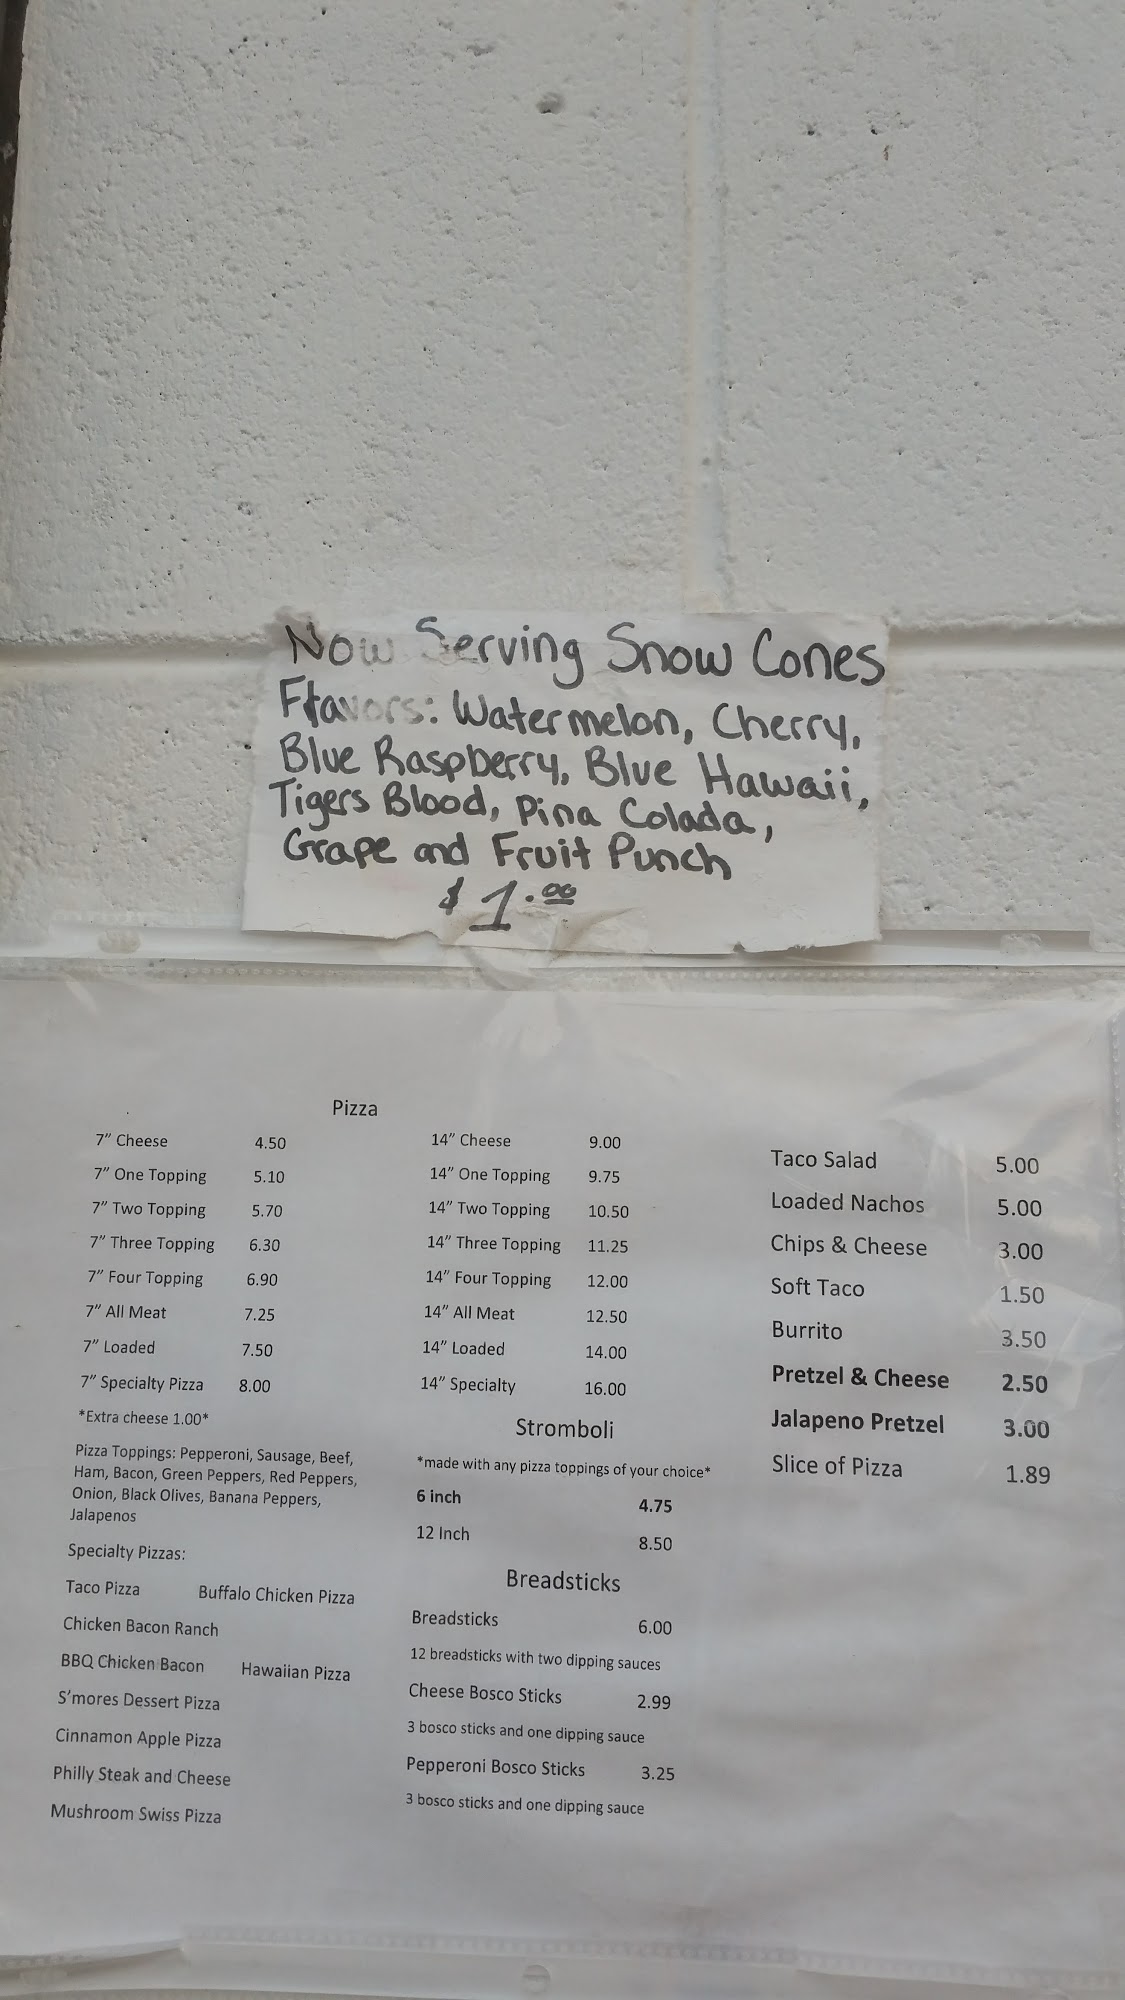 Now Serving Snow Cones
Flavors: Watermelon, Cherry,
Blue Raspberry, Blue Hawaii,
Tigers Blood, Pina Colada,
Grape and Fruit Punch
$1.00
Pizza
7" Cheese 4.50
7" One Topping 5.10
7" Two Topping 5.70
7" Three Topping 6.30
7" Four Topping 6.90
7" All Meat 7.25
7" Loaded 7.50
7" Specialty Pizza 8.00
*Extra cheese 1.00*
Pizza Toppings: Pepperoni, Sausage, Beef,
Ham, Bacon, Green Peppers, Red Peppers,
Onion, Black Olives, Banana Peppers,
Jalapenos
Specialty Pizzas:
Taco Pizza Buffalo Chicken Pizza
Chicken Bacon Ranch
BBQ Chicken Bacon Hawaiian Pizza
S'mores Dessert Pizza
Cinnamon Apple Pizza
Philly Steak and Cheese
Mushroom Swiss Pizza
14" Cheese 9.00
14" One Topping 9.75
14" Two Topping 10.50
14" Three Topping 11.25
14" Four Topping 12.00
14" All Meat 12.50
14" Loaded 14.00
14" Specialty 16.00
Stromboli
*made with any pizza toppings of your choice*
6 inch 4.75
12 Inch 8.50
Breadsticks
Breadsticks 6.00
12 breadsticks with two dipping sauces
Cheese Bosco Sticks 2.99
3 bosco sticks and one dipping sauce
Pepperoni Bosco Sticks 3.25
3 bosco sticks and one dipping sauce
Taco Salad 5.00
Loaded Nachos 5.00
Chips & Cheese 3.00
Soft Taco 1.50
Burrito 3.50
Pretzel & Cheese 2.50
Jalapeno Pretzel 3.00
Slice of Pizza 1.89